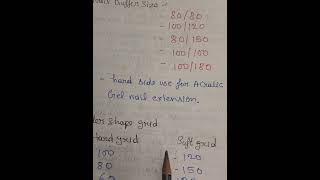 Buffer Size :-
80/80
- 100/120
- 80/150
- 100/100
- 100/180
- hard side use for Acrylic
Gel nail extension.
Shape grid
hard grid Soft grid
100 - 120
80 - 150
60